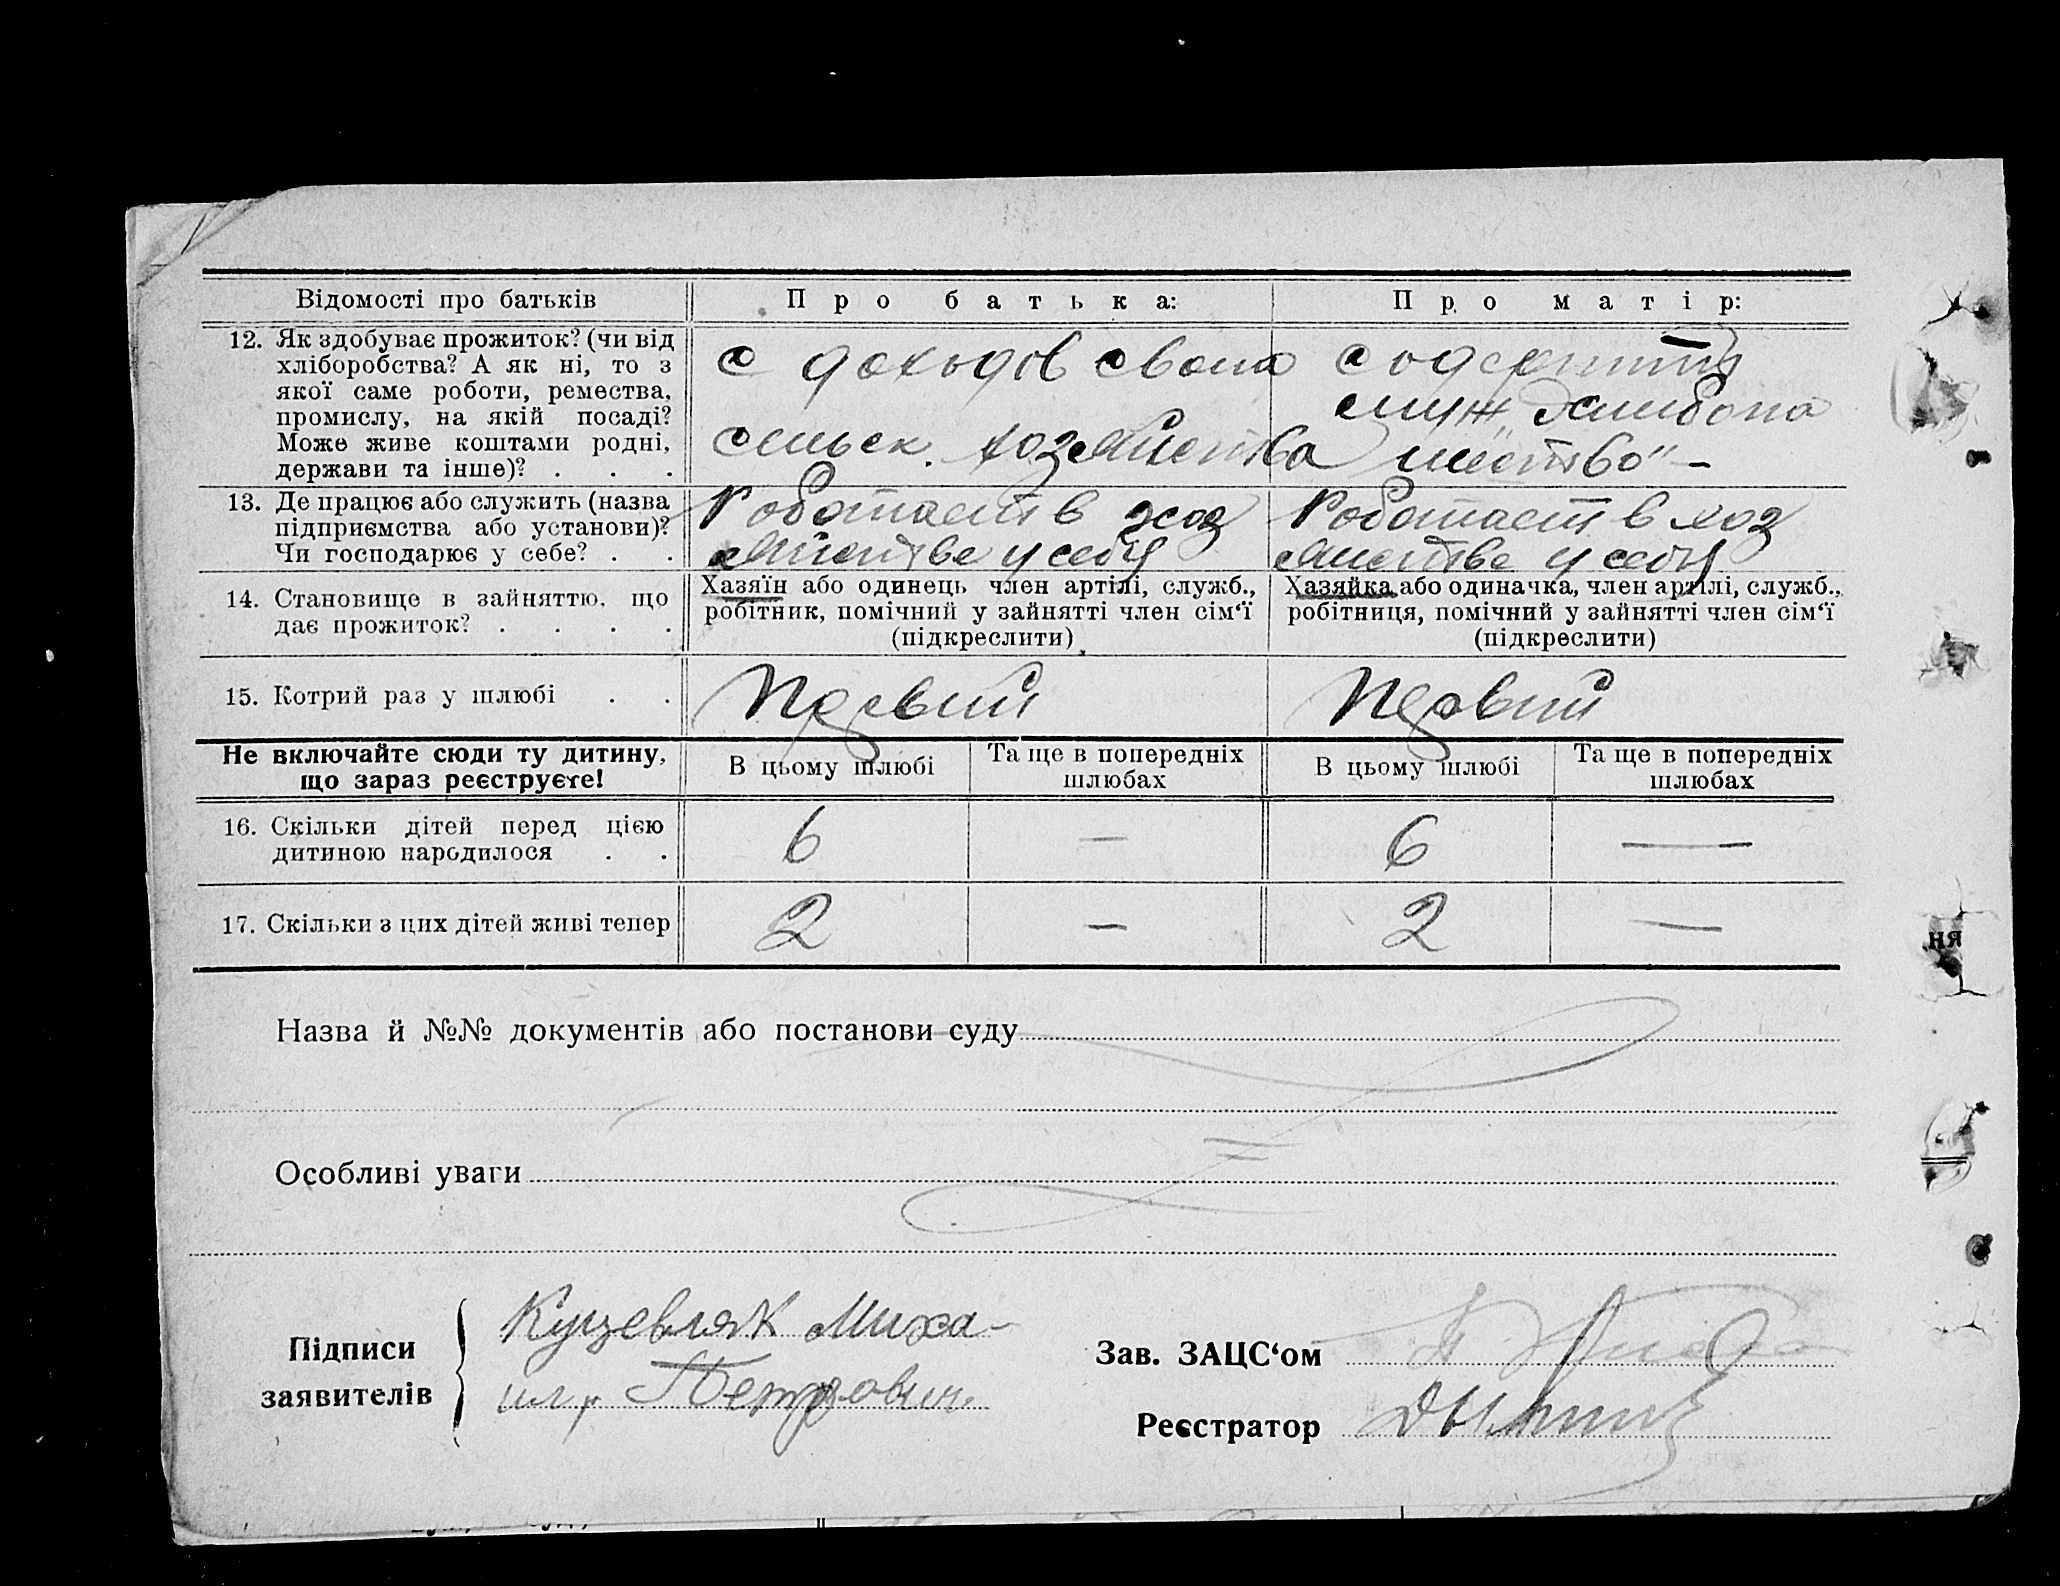 Відомості про батьків
Про батька:
Про матір:
12. Як здобуває прожиток? (чи від
хліборобства? А як ні, то з
якої саме роботи, ремества,
промислу, на якій посаді?
Може живе коштами родні,
держави та інше)? . . .
с доходов своиго
сельск. хозяйства
содержит
муж
13. Де працює або служить (назва
підприємства або установи)?
Чи господарює у себе? . .
Работает в хоз
яйстве у себя
Работает в хоз
яйстве у себя
14. Становище в зайняттю, що
дає прожиток? . . . .
Хазяїн або одинець член артілі, служб.,
робітник, помічний у зайнятті член сім‘ї
(підкреслити)
Хазяйка або одиначка, член артілі, служб.,
робітниця, помічний у зайнятті член сім‘ї
(підкреслити)
15. Котрий раз у шлюбі . .
Первий
Первий
Не включайте сюди ту дитину,
що зараз реєструєте!
В цьому шлюбі
Та ще в попередніх
шлюбах
В цьому шлюбі
Та ще в попередніх
шлюбах
16. Скільки дітей перед цією
дитиною народилося . .
6
—
6
—
17. Скільки з цих дітей живі тепер
2
—
2
—
Назва й №№ документів або постанови суду
Особливі уваги
Підписи
заявителів
Миха-
ил Петрович
Зав. ЗАЦС‘ом
Реєстратор
ня